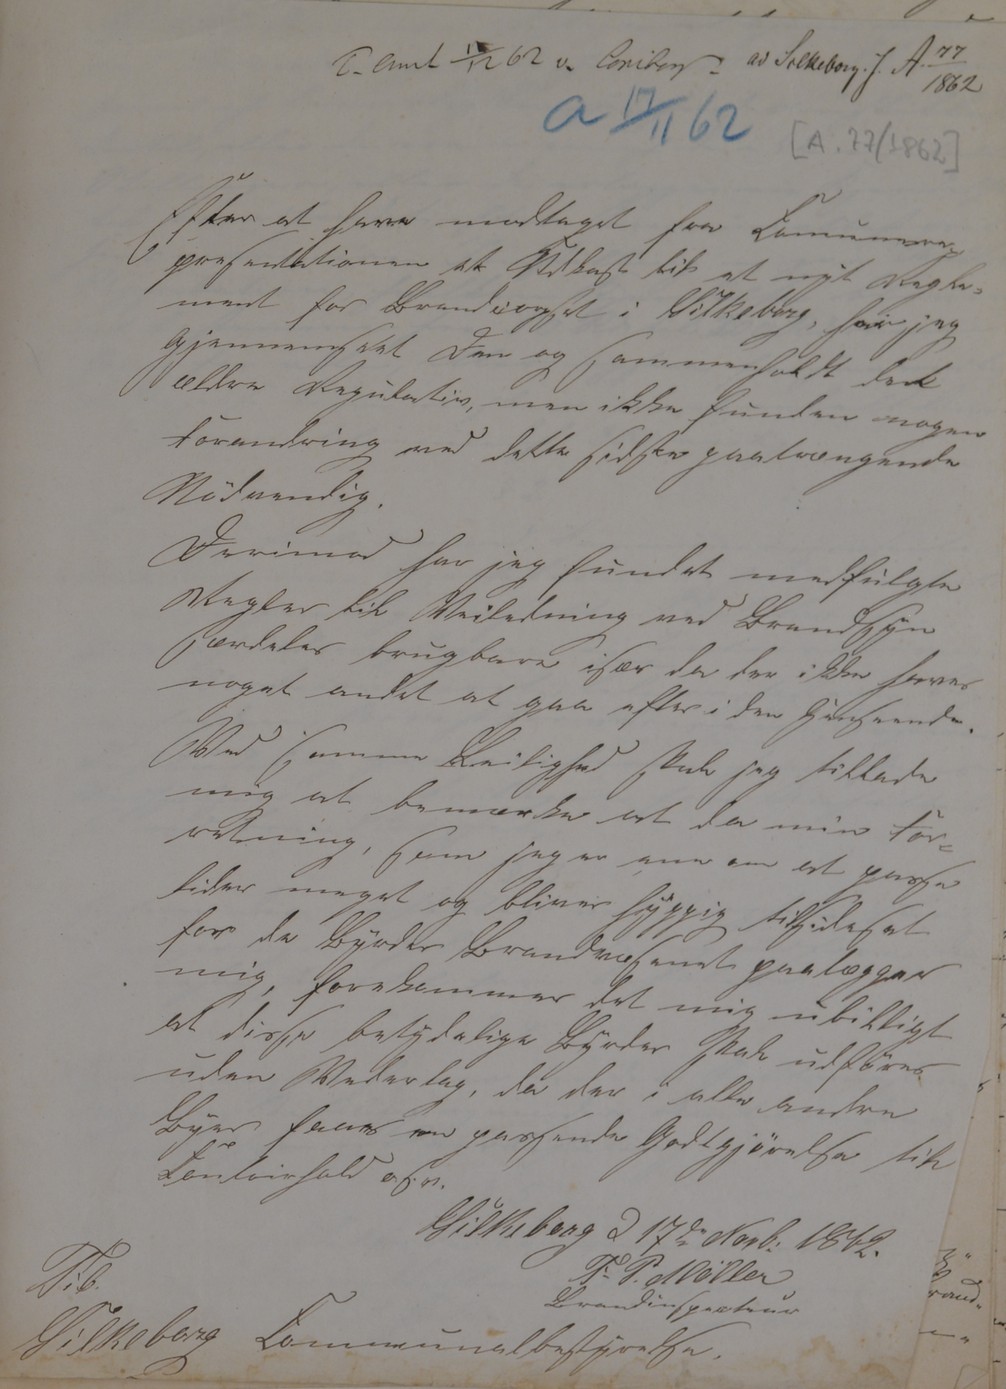 T. Amt 17/12 62 v. ad Silkeborg J. A 77/1862
a 17/11 62
[A. 77/1862]
Efter at have modtaget fra Communere-
præsentationen et Udkast til et nyt Regle-
ment for Brandcorpset i Silkeborg, har jeg
gjennemseet den og sammenholdt det
ældre Regulativ, men ikke funden nogen
Forandring ved dette sidste paatrængende
Nödvendig.
Derimod har jeg fundet medfulgte
Regler til Veiledning ved Brandsyn
særdeles brugbare især da der ikke haves
noget andet at gaa efter i den Henseende.
Ved samme Leilighed skal jeg tillade
mig at bemærke at da min For-
retning, som jeg er ene om at passe
lider meget og bliver hyppig tilsidesat
for de Byrder Brandvæsenet paalægger
mig, forekommer det mig ubilligt
at disse betydelige Byrder skal udföres
uden Vederlag, da der i alle andre
Byer faaes en passende Godtgjörelse til
Contoirhold osv.
Silkeborg d 17de Novb. 1862.
P. Möller
Brandinspecteur
Til
Silkeborg Communalbestyrelse.